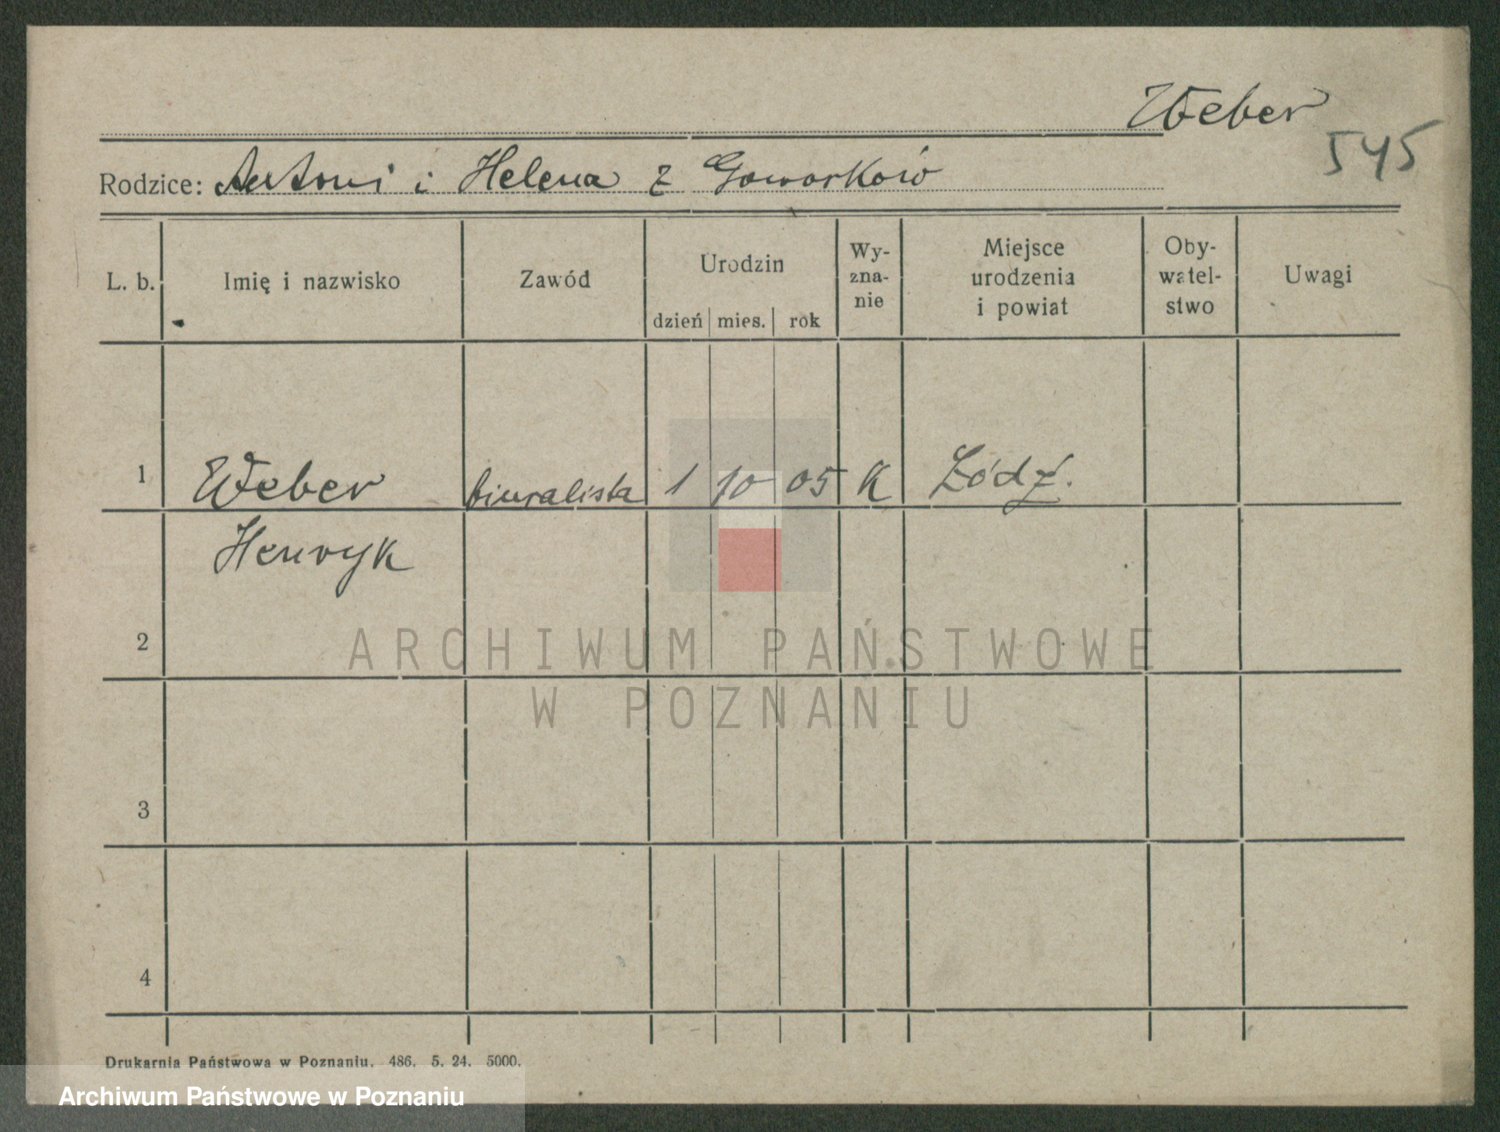 Weber
545
Rodzice: Antoni i Helena z Goworków
L. b. Imię i nazwisko Zawód Urodzin dzień mies. rok Wy-zna-nie Miejsce urodzenia i powiat Oby-watel-stwo Uwagi
1 Weber biuralista 1 10 05 K Łódź.
Henryk
2
3
4
ARCHIWUM PAŃSTWOWE
W POZNANIU
Drukarnia Państwowa w Poznaniu. 486. 5. 24. 5000.
Archiwum Państwowe w Poznaniu